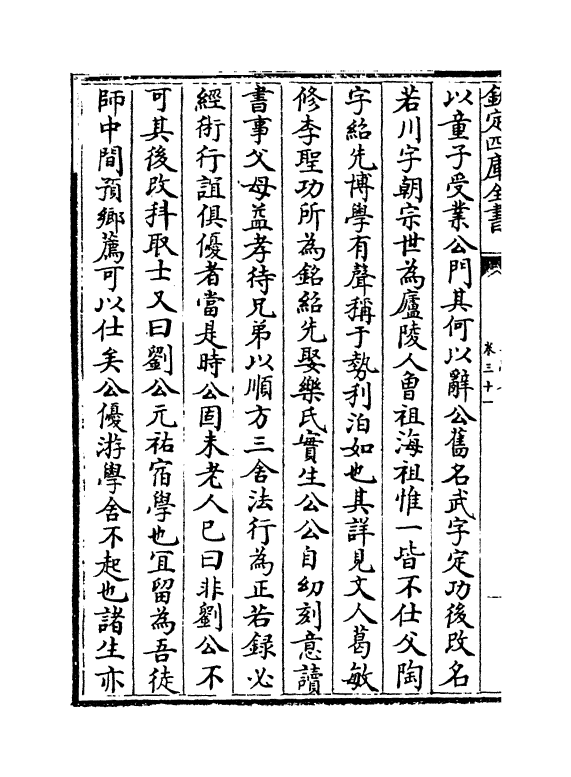 欽定四庫全書
卷三十一
以童子受業公門其何以辭公舊名武字定功後改名
若川字朝宗世為廬陵人曾祖海祖惟一皆不仕父陶
字紹先博學有聲稱于勢利泊如也其詳見文人葛敏
修李聖功所為銘紹先娶樂氏實生公公自幼刻意讀
書事父母益孝待兄弟以順方三舍法行為正若録必
經術行誼俱優者當是時公固未老人已曰非劉公不
可其後改科取士又曰劉公元祐宿學也宜留為吾徒
師中間預鄉薦可以仕矣公優游學舍不起也諸生亦